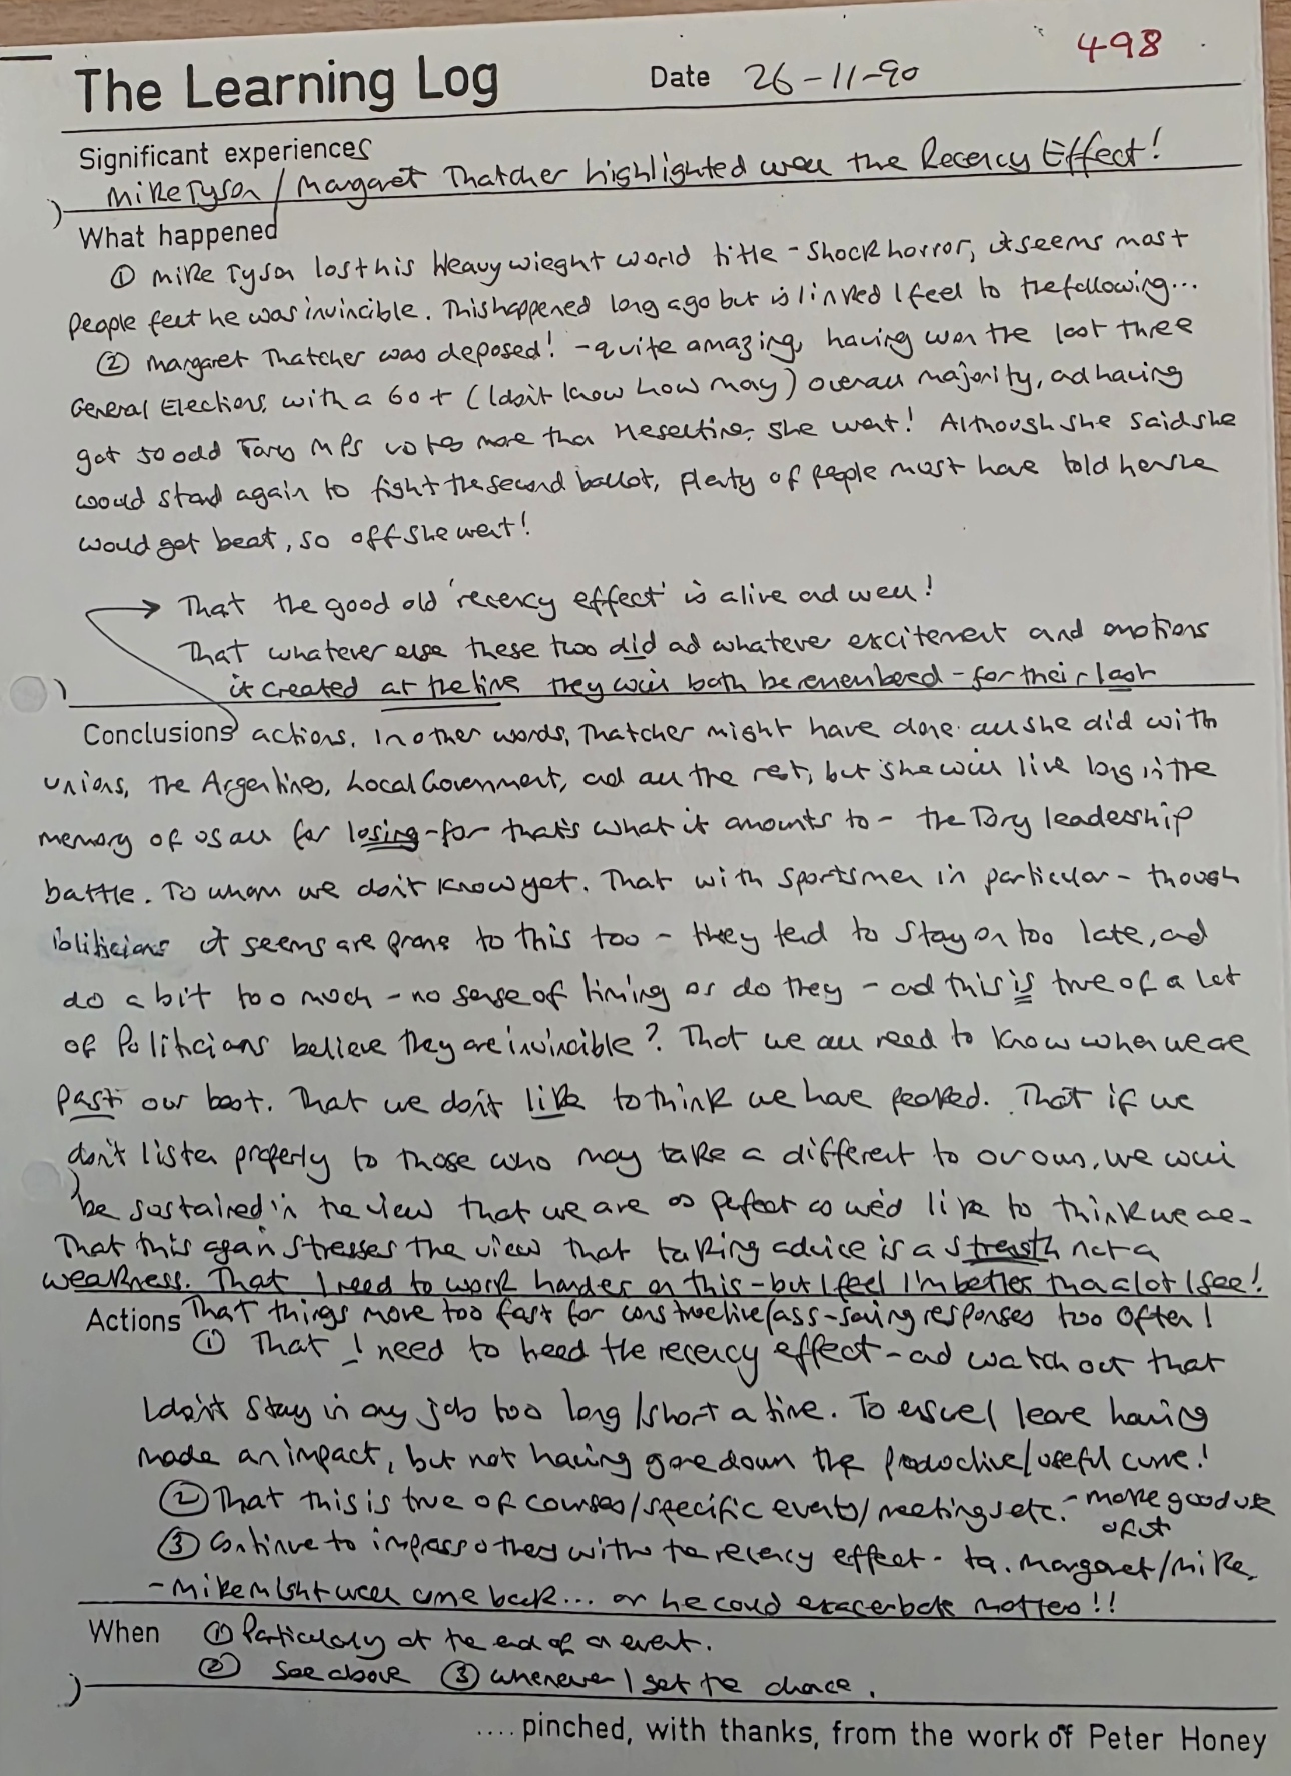 498
The Learning Log Date 26-11-90
Significant experiences
Mike Tyson / Margaret Thatcher highlighted well the Recency Effect!
What happened
① Mike Tyson lost his Heavy wieght world title - Shock horror, it seems most
people felt he was invincible. This happened long ago but is linked I feel to the following...
② Margaret Thatcher was deposed! - quite amazing, having won the last three
General Elections, with a 60+ (I don't know how may) overall majority, ad having
got 50 odd Tory MPs votes more than Heseltine, she went! Although she said she
would stand again to fight the second ballot, plenty of people must have told her she
would get beat, so off she went!
That the good old 'recency effect' is alive ad well!
That whatever else these two did ad whatever excitement and emotions
it created at the time they will both be remembered - for their last
Conclusions actions. In other words, Thatcher might have done all she did with
unions, the Argentines, Local Government, ad all the rest, but she will live long in the
memory of us all for losing - for that's what it amounts to - the Tory leadership
battle. To whom we don't know yet. That with sportsmen in particular - though
politicians it seems are prone to this too - they tend to stay on too late, ad
do a bit too much - no sense of timing or do they - ad this is true of a lot
of Politicians believe they are invincible? That we all need to know when we are
past our best. That we don't like to think we have peaked. That if we
don't listen properly to those who may take a different to our own, we will
be sustained in the view that we are as perfect as we'd like to think we are.
That this again stresses the view that taking advice is a strength not a
weakness. That I need to work harder on this - but I feel I'm better than a lot I see!
Actions That things move too fast for constructive/ass-saving responses too often!
① That I need to heed the recency effect - ad watch out that
I don't stay in any job too long/short a time. To ensure I leave having
made an impact, but not having gone down the productive/useful curve!
② That this is true of courses/specific events/meetings etc. - make good use
of it
③ Continue to impress others with the recency effect - ta. Margaret/Mike.
- Mike might well come back... or he could exacerbate matters!!
When ① Particularly at the end of an event.
② See above ③ Whenever I get the chance.
.... pinched, with thanks, from the work of Peter Honey